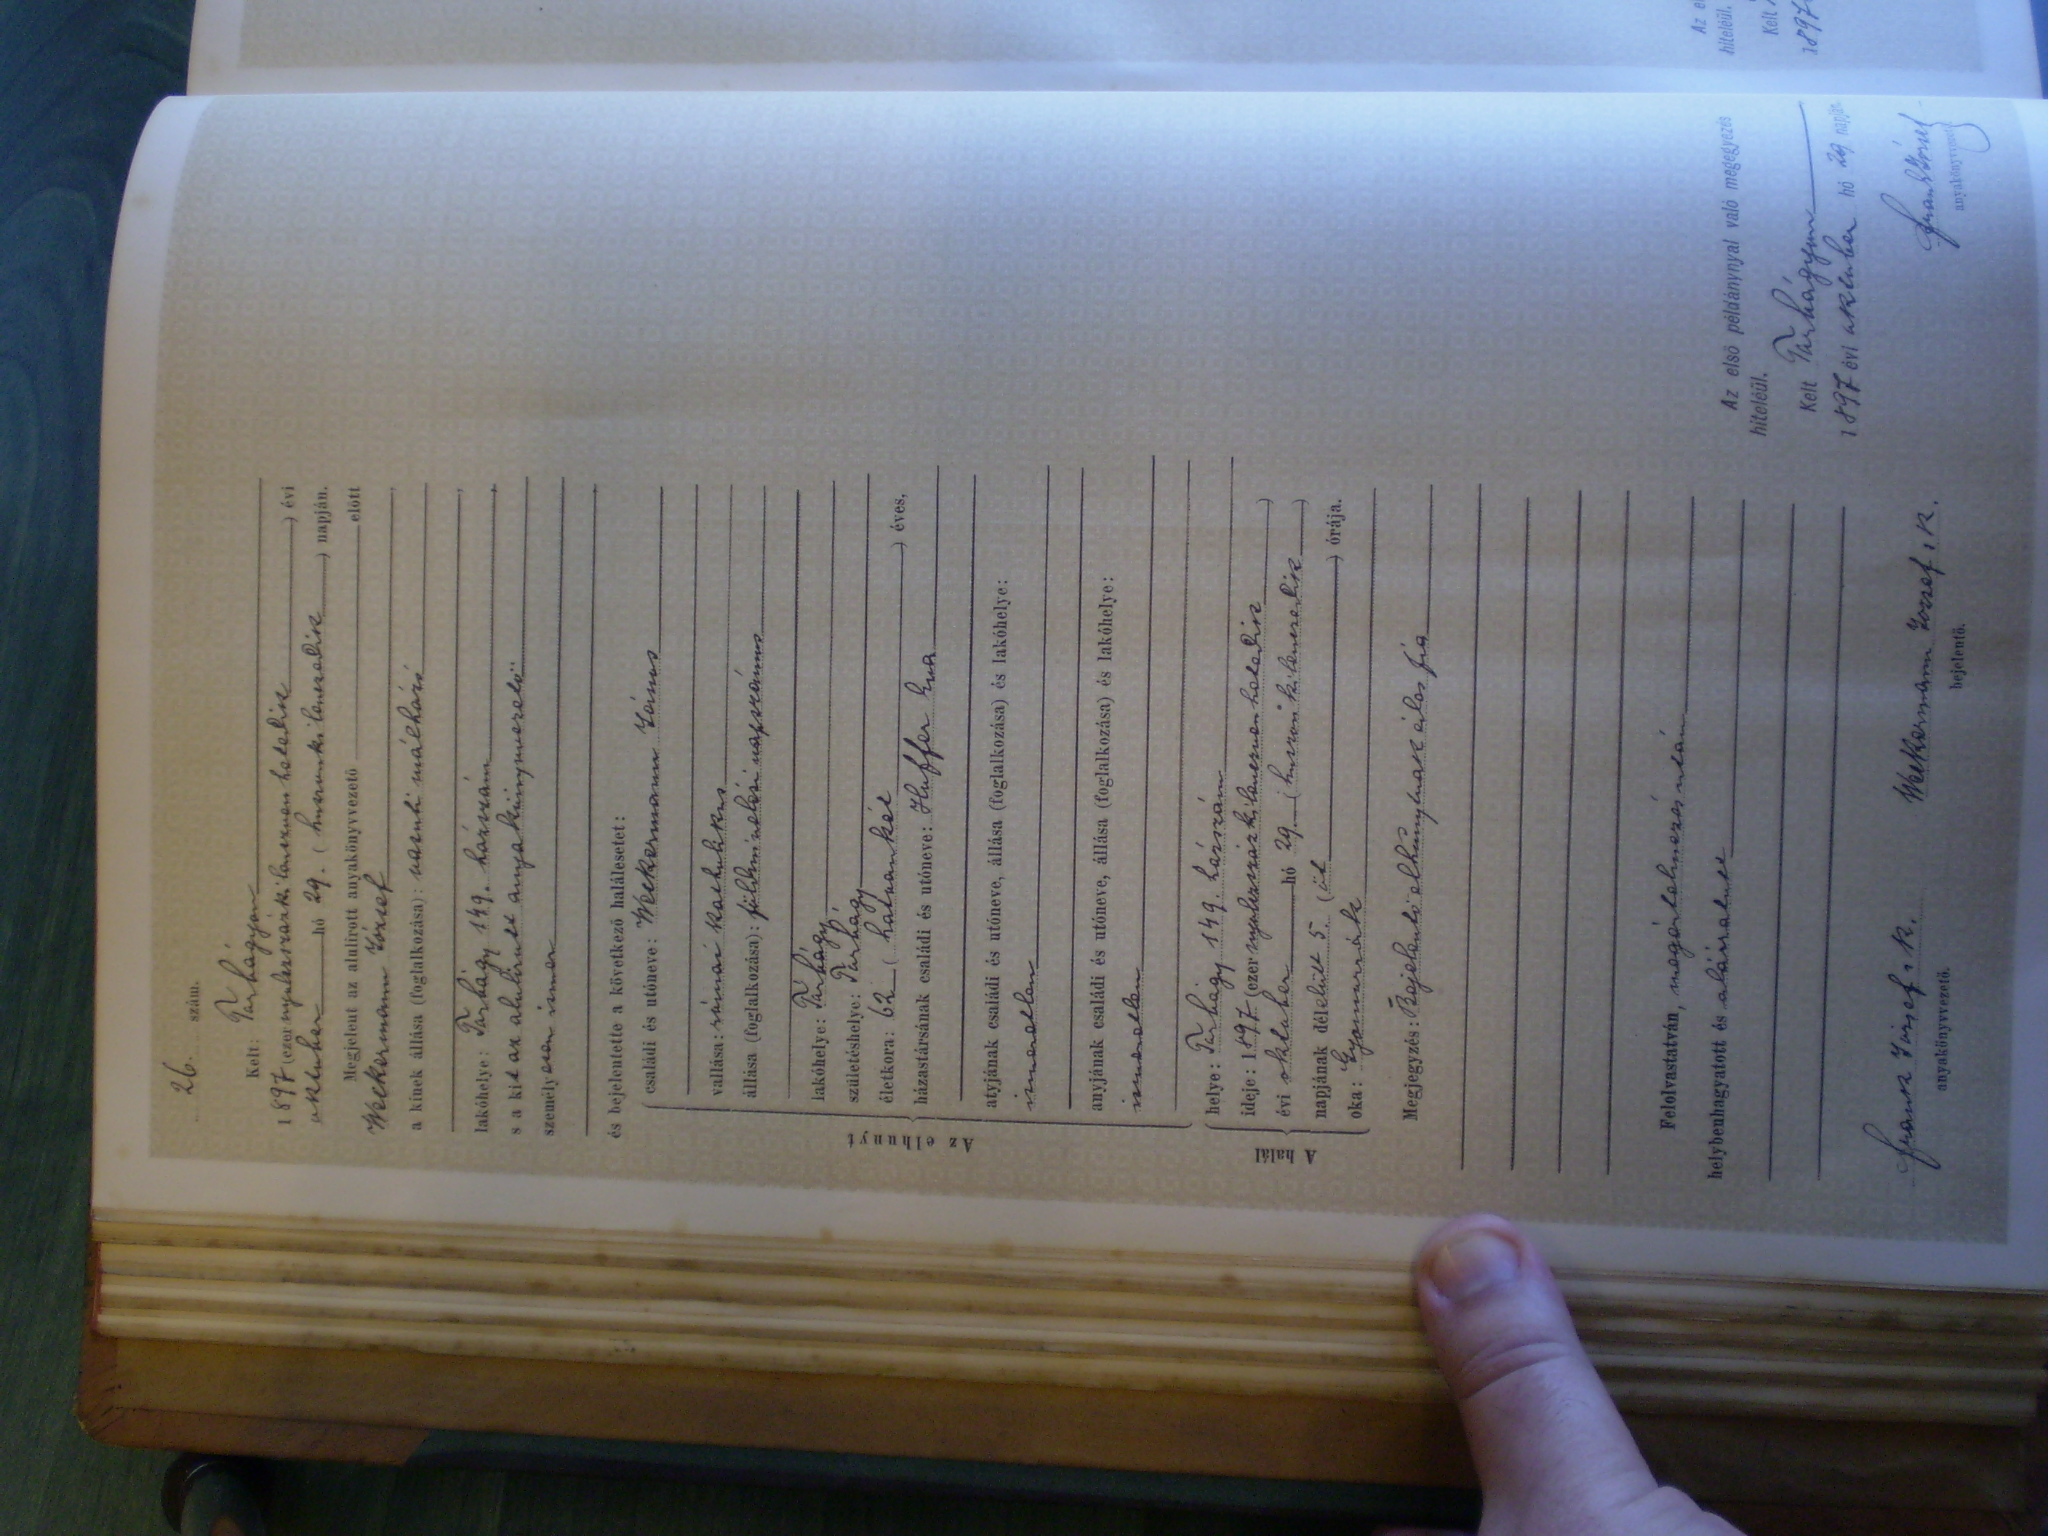 26. szám.
Kelt: Tárhágyon
1897 (ezer nyolczszázkilenczvenhetedik) évi
október hó 29. (huszonkilenczedik) napján.
Megjelent az alulirott anyakönyvvezető előtt
Wekermann József
a kinek állása (foglalkozása): vasuti málházó
lakóhelye: Tárhágy 149. házszám
s a kit az alulirott anyakönyvvezető
személyesen ismer
és bejelentette a következő halálesetet:
Az elhunyt
családi és utóneve: Wekermann János
vallása: római katholikus
állása (foglalkozása): földmívelési napszámos
lakóhelye: Tárhágy
születéshelye: Tárhágy
életkora: 62 (hatvankét) éves,
házastársának családi és utóneve: Huffer Éva
atyjának családi és utóneve, állása (foglalkozása) és lakóhelye:
ismeretlen
anyjának családi és utóneve, állása (foglalkozása) és lakóhelye:
ismeretlen
A halál
helye: Tárhágy 149. házszám
ideje: 1897 (ezer nyolczszázkilenczvenhetedik)
évi október hó 29. (huszonkilenczedik)
napjának délelütt 5. (öt) órája.
oka:
Megjegyzés: Bejelentő elhunytnak édes fia
Felolvastatván, megértelmezés után
helybenhagyatott és aláiratott
Frank József s. k.
anyakönyvvezető.
Wekermann József s. k.
bejelentő.
Az első példánynyal való megegyezés
hiteléül.
Kelt Tárhágyon
1897 évi október hó 29 napján.
Frank József
anyakönyvvezető
Az el
hiteléül.
Kelt
1897